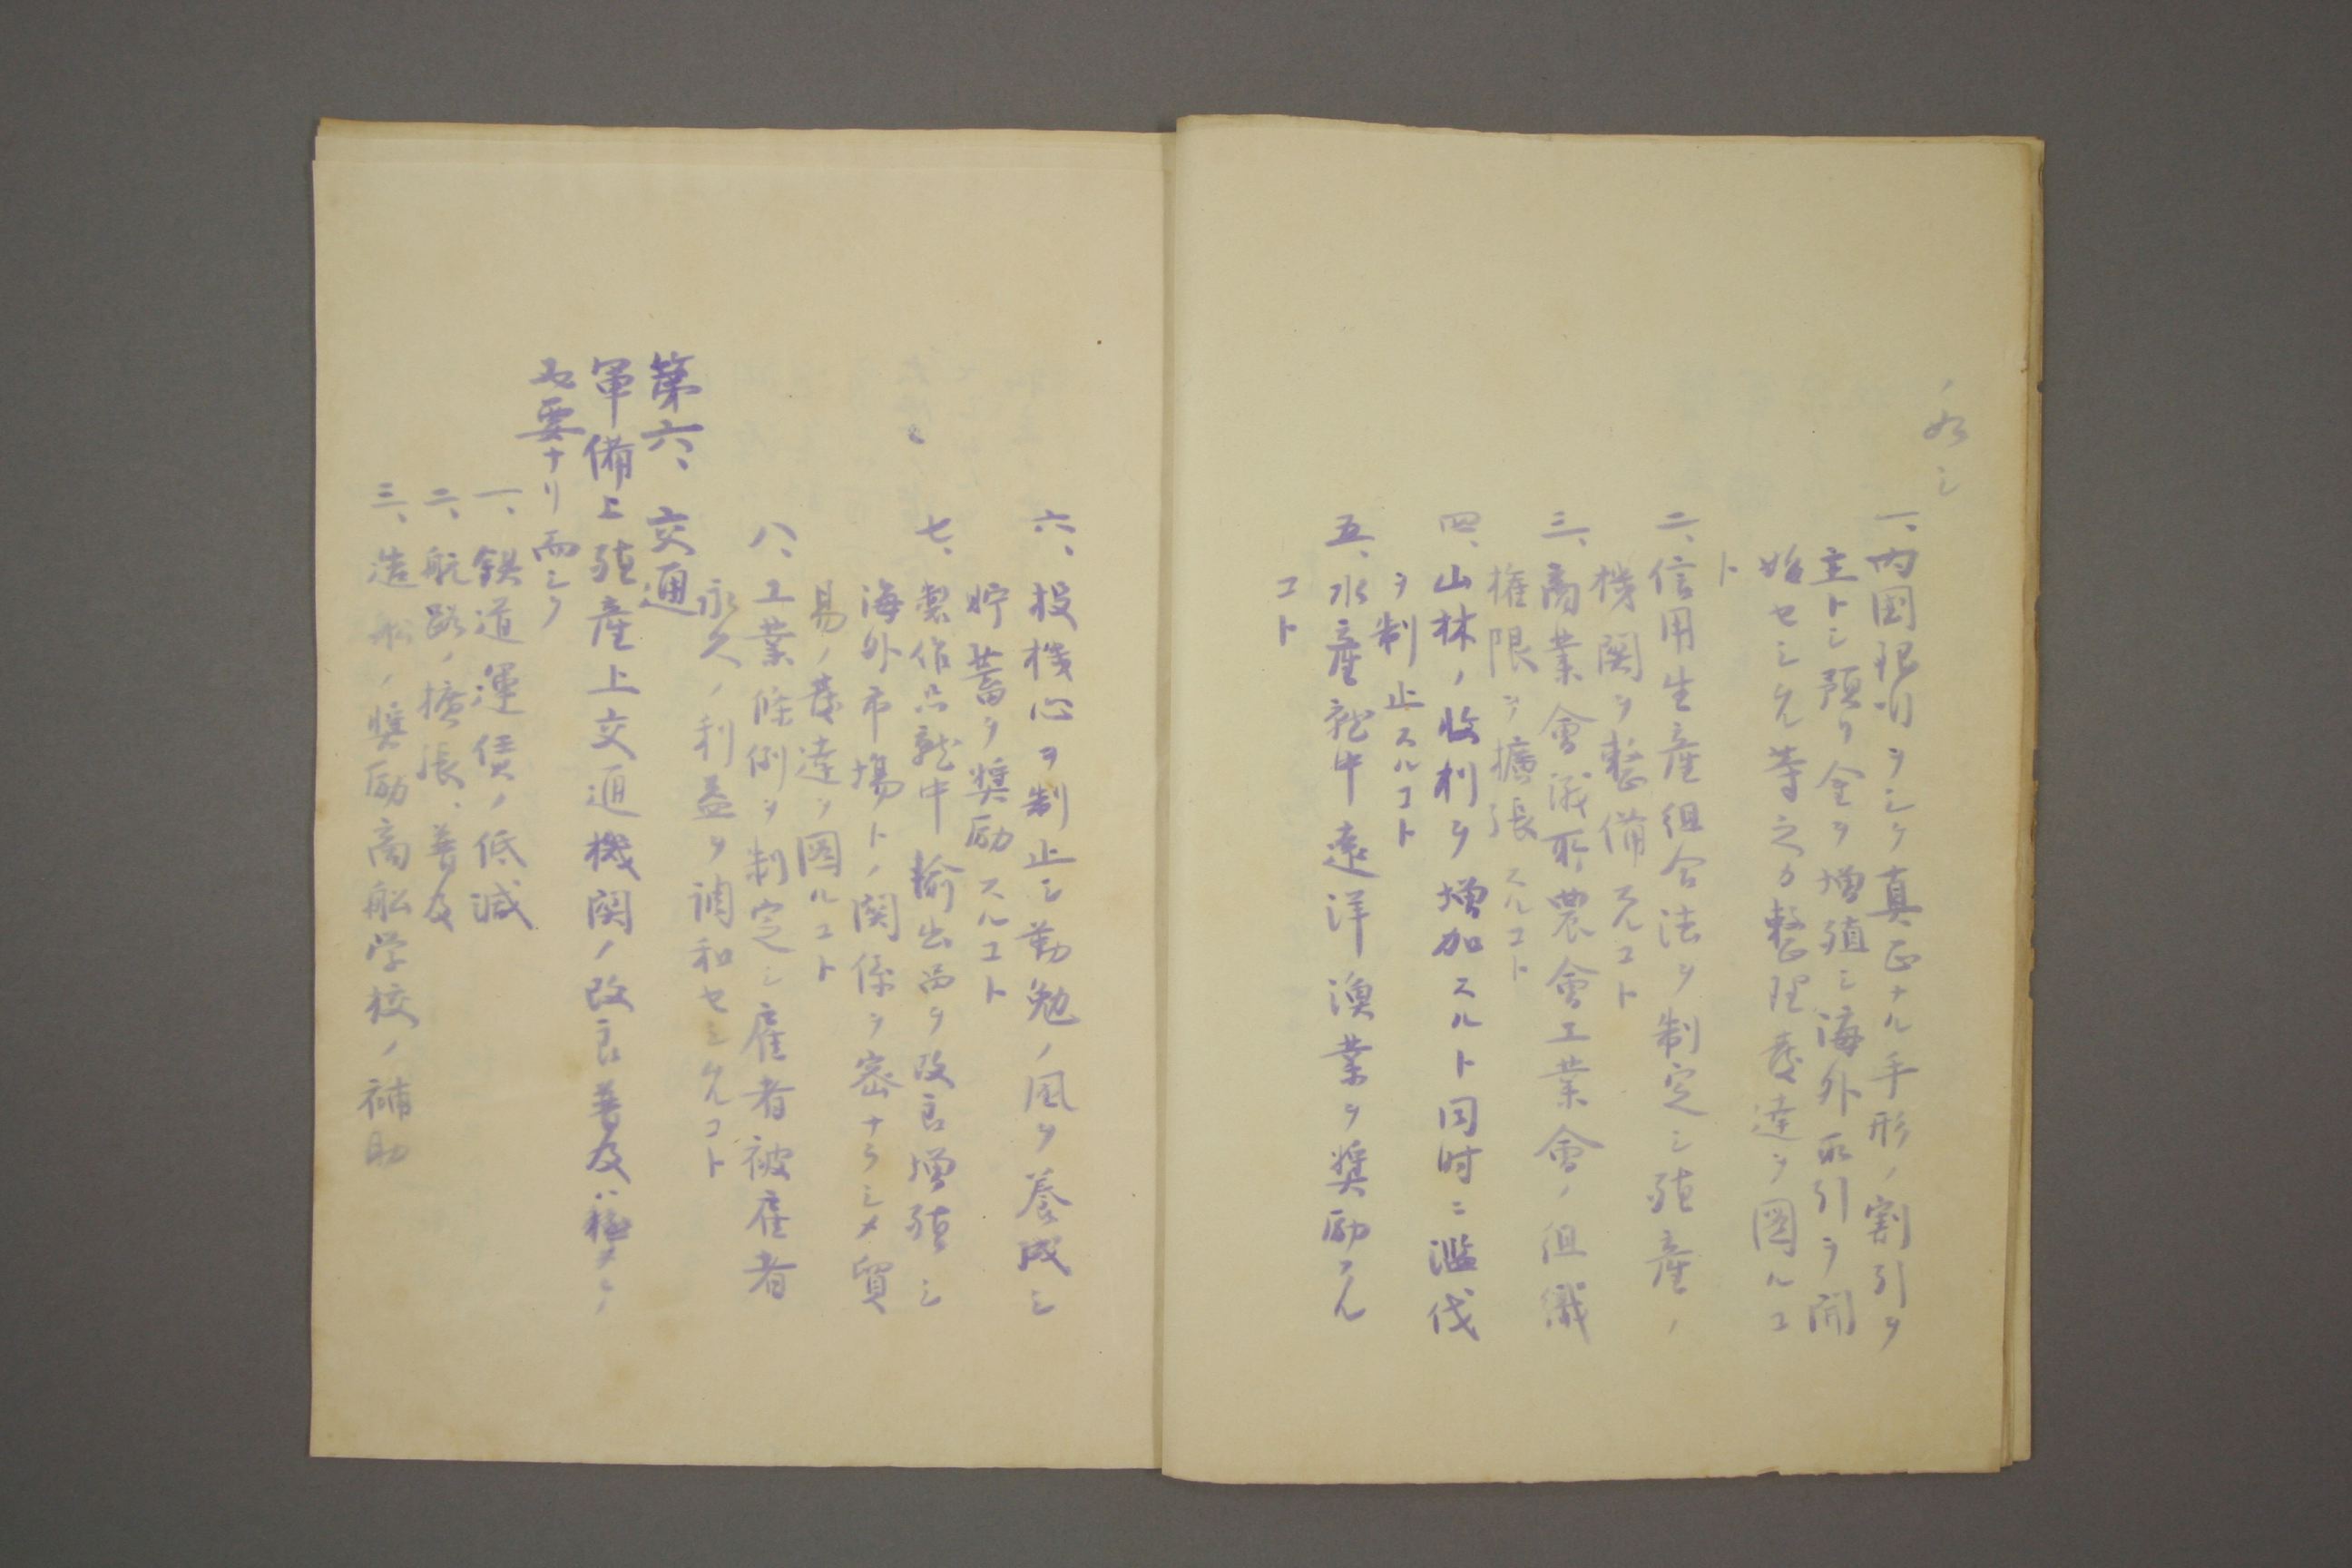 ノ如シ
一、内国銀行ヲシテ真正ナル手形ノ割引ヲ
主トシ預リ金ヲ増殖シ海外取引ヲ開
始セシムル等之カ整理発達ヲ図ルコ
ト
二、信用生産組合法ヲ制定シ殖産ノ
機関ヲ整備スルコト
三、商業會議所農會工業會ノ組織
権限ヲ擴張スルコト
四、山林ノ收利ヲ増加スルト同時ニ濫伐
ヲ制止スルコト
五、水産就中遠洋漁業ヲ奨励スル
コト
六、投機心ヲ制止シ勤勉ノ風ヲ養成シ
貯蓄ヲ奨励スルコト
七、製作品就中輸出品ヲ改良増殖シ
海外市場トノ関係ヲ密ナラシメ貿
易ノ発達ヲ図ルコト
八、工業條例ヲ制定シ雇者被雇者
永久ノ利益ヲ調和セシムルコト
第六、交通
軍備上殖産上交通機関ノ改良普及ハ極メテ
必要ナリ而シテ
一、鉄道運賃ノ低減
二、航路ノ擴張、普及
三、造船ノ奨励商船学校ノ補助